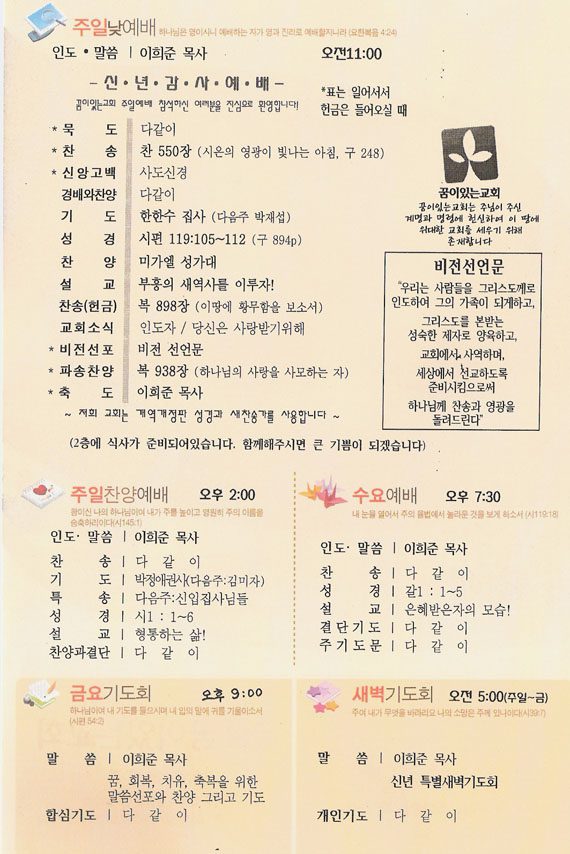 주일낮예배 하나님은 영이시니 예배하는 자가 영과 진리로 예배할지니라 (요한복음 4:24)
인도 • 말씀 | 이희준 목사 오전11:00
- 신 · 년 · 감 · 사 · 예 · 배 -
꿈이있는교회 주일예배 참석하신 여러분을 진심으로 환영합니다!
*표는 일어서서
헌금은 들어오실 때
* 묵 도 다같이
* 찬 송 찬 550장 (시온의 영광이 빛나는 아침, 구 248)
* 신앙고백 사도신경
경배와찬양 다같이
기 도 한한수 집사 (다음주 박재섭)
성 경 시편 119:105~112 (구 894p)
찬 양 미가엘 성가대
설 교 부흥의 새역사를 이루자!
찬송(헌금) 복 898장 (이땅에 황무함을 보소서)
교회소식 인도자 / 당신은 사랑받기위해
* 비전선포 비전 선언문
* 파송찬양 복 938장 (하나님의 사랑을 사모하는 자)
* 축 도 이희준 목사
~ 저희 교회는 개역개정판 성경과 새찬송가를 사용합니다 ~
(2층에 식사가 준비되어있습니다. 함께해주시면 큰 기쁨이 되겠습니다)
꿈이있는교회
꿈이있는교회는 주님이 주신
계명과 명령에 헌신하여 이 땅에
위대한 교회를 세우기 위해
존재합니다
비전선언문
"우리는 사람들을 그리스도께로
인도하여 그의 가족이 되게하고,
그리스도를 본받는
성숙한 제자로 양육하고,
교회에서 사역하며,
세상에서 선교하도록
준비시킴으로써
하나님께 찬송과 영광을
돌려드린다"
주일찬양예배 오후 2:00
왕이신 나의 하나님이여 내가 주를 높이고 영원히 주의 이름을
송축하리이다(시145:1)
인도· 말씀 | 이희준 목사
찬 송 | 다 같 이
기 도 | 박정애권사(다음주:김미자)
특 송 | 다음주:신입집사님들
성 경 | 시1 : 1~6
설 교 | 형통하는 삶!
찬양과결단 | 다 같 이
수요예배 오후 7:30
내 눈을 열어서 주의 율법에서 놀라운 것을 보게 하소서 (시119:18)
인도· 말씀 | 이희준 목사
찬 송 | 다 같 이
성 경 | 갈1 : 1~5
설 교 | 은혜받은자의 모습!
결단기도 | 다 같 이
주기도문 | 다 같 이
금요기도회 오후 9:00
하나님이여 내 기도를 들으시며 내 입의 말에 귀를 기울이소서
(시편 54:2)
말 씀 | 이희준 목사
꿈, 회복, 치유, 축복을 위한
말씀선포와 찬양 그리고 기도
합심기도 | 다 같 이
새벽기도회 오전 5:00(주일~금)
주여 내가 무엇을 바라리요 나의 소망은 주께 있나이다(시39:7)
말 씀 | 이희준 목사
신년 특별새벽기도회
개인기도 | 다 같 이